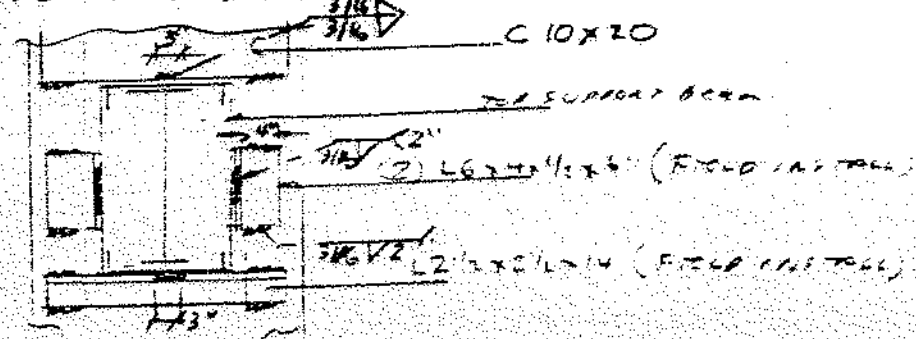 3/16
3/16
3"
C 10 x 20
TOP SUPPORT BEAM
4"
3/16 2"
(2) L6 x 4 x 1/2 x 6" (FIELD INSTALL)
3/16 2
L2 1/2 x 2 1/2 x 1/4 (FIELD INSTALL)
3"